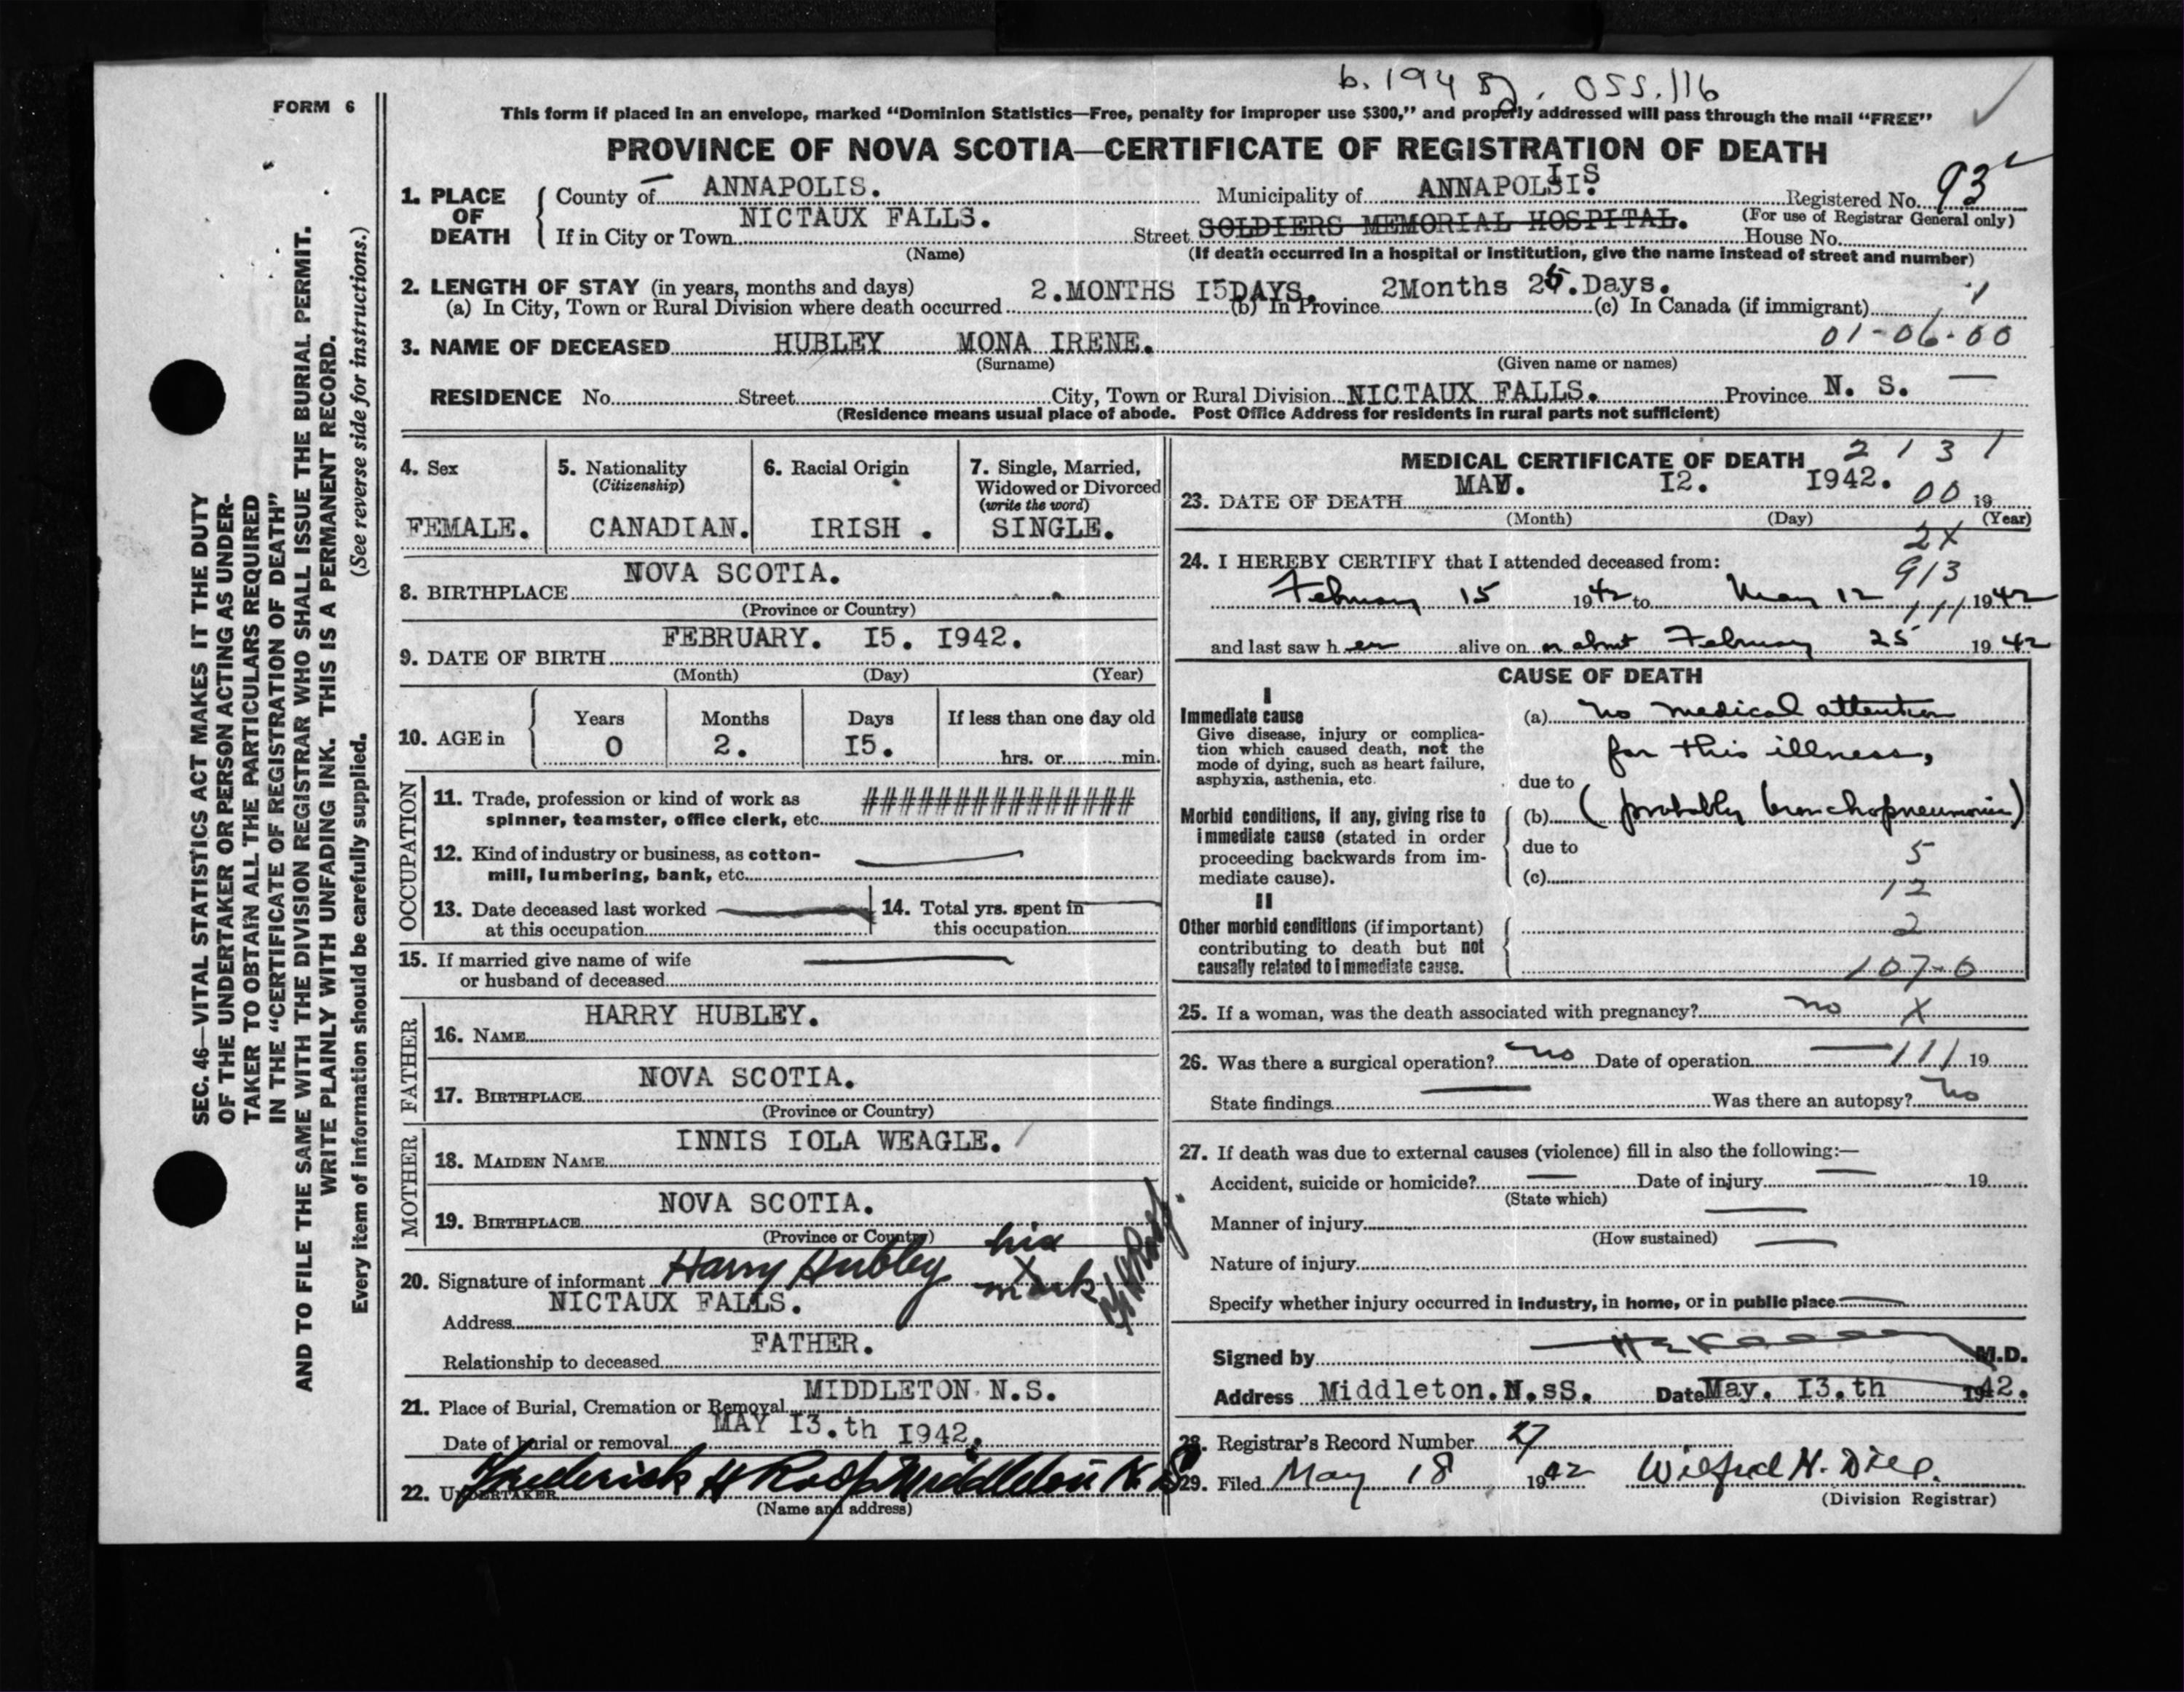 b. 1942 pg. 055116
FORM 6
This form if placed in an envelope, marked "Dominion Statistics—Free, penalty for improper use $300," and properly addressed will pass through the mail "FREE"
PROVINCE OF NOVA SCOTIA—CERTIFICATE OF REGISTRATION OF DEATH
1. PLACE OF DEATH
County of ANNAPOLIS. Municipality of ANNAPOLIS. Registered No. 93
(For use of Registrar General only)
If in City or Town NICTAUX FALLS. Street SOLDIERS MEMORIAL HOSPITAL. House No.
(Name) (If death occurred in a hospital or institution, give the name instead of street and number)
2. LENGTH OF STAY (in years, months and days)
(a) In City, Town or Rural Division where death occurred 2.MONTHS I5DAYS. (b) In Province 2Months 25.Days. (c) In Canada (if immigrant)
01-06-00
3. NAME OF DECEASED HUBLEY MONA IRENE.
(Surname) (Given name or names)
RESIDENCE No. Street City, Town or Rural Division NICTAUX FALLS. Province N. S.
(Residence means usual place of abode. Post Office Address for residents in rural parts not sufficient)
4. Sex
FEMALE.
5. Nationality
(Citizenship)
CANADIAN.
6. Racial Origin
IRISH .
7. Single, Married,
Widowed or Divorced
(write the word)
SINGLE.
8. BIRTHPLACE NOVA SCOTIA.
(Province or Country)
9. DATE OF BIRTH FEBRUARY. I5. I942.
(Month) (Day) (Year)
10. AGE in
Years Months Days If less than one day old
0 2. I5. hrs. or min.
OCCUPATION
11. Trade, profession or kind of work as ###############
spinner, teamster, office clerk, etc.
12. Kind of industry or business, as cotton-
mill, lumbering, bank, etc.
13. Date deceased last worked
at this occupation
14. Total yrs. spent in
this occupation
15. If married give name of wife
or husband of deceased
FATHER
16. NAME HARRY HUBLEY.
17. BIRTHPLACE NOVA SCOTIA.
(Province or Country)
MOTHER
18. MAIDEN NAME INNIS IOLA WEAGLE.
19. BIRTHPLACE NOVA SCOTIA.
(Province or Country)
20. Signature of informant Harry Hubley his X mark
Address NICTAUX FALLS.
Relationship to deceased FATHER.
21. Place of Burial, Cremation or Removal MIDDLETON N.S.
Date of burial or removal MAY I3.th I942.
22. UNDERTAKER Frederick H Roop Middleton N. S
(Name and address)
MEDICAL CERTIFICATE OF DEATH 2 1 3 1
23. DATE OF DEATH MAY. I2. I942. 00 19
(Month) (Day) (Year)
2X
24. I HEREBY CERTIFY that I attended deceased from:
913
February 15 1942 to May 12 1942
111
and last saw her alive on or about February 25 1942
CAUSE OF DEATH
I
Immediate cause
Give disease, injury or complica-
tion which caused death, not the
mode of dying, such as heart failure,
asphyxia, asthenia, etc.
(a) no medical attention
for this illness,
due to
Morbid conditions, if any, giving rise to
immediate cause (stated in order
proceeding backwards from im-
mediate cause).
(b) (probably bronchopneumonia)
due to
5
(c)
12
II
Other morbid conditions (if important)
contributing to death but not
causally related to immediate cause.
2
107-0
25. If a woman, was the death associated with pregnancy? no X
26. Was there a surgical operation? no Date of operation 111 19
State findings Was there an autopsy? no
27. If death was due to external causes (violence) fill in also the following:—
Accident, suicide or homicide? Date of injury 19
(State which)
Manner of injury
(How sustained)
Nature of injury
Specify whether injury occurred in industry, in home, or in public place
Signed by M.D.
Address Middleton.N.sS. Date May. I3.th 1942.
28. Registrar's Record Number 27
29. Filed May 18 1942 Wilfred H. Dill.
(Division Registrar)
SEC. 46—VITAL STATISTICS ACT MAKES IT THE DUTY
OF THE UNDERTAKER OR PERSON ACTING AS UNDER-
TAKER TO OBTAIN ALL THE PARTICULARS REQUIRED
IN THE "CERTIFICATE OF REGISTRATION OF DEATH"
AND TO FILE THE SAME WITH THE DIVISION REGISTRAR WHO SHALL ISSUE THE BURIAL PERMIT.
WRITE PLAINLY WITH UNFADING INK. THIS IS A PERMANENT RECORD.
Every item of information should be carefully supplied. (See reverse side for instructions.)